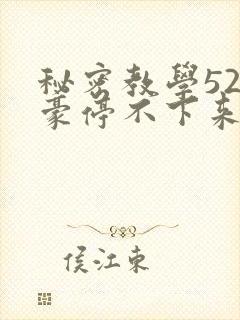 秘密教學52
豪停不下來
侯江東